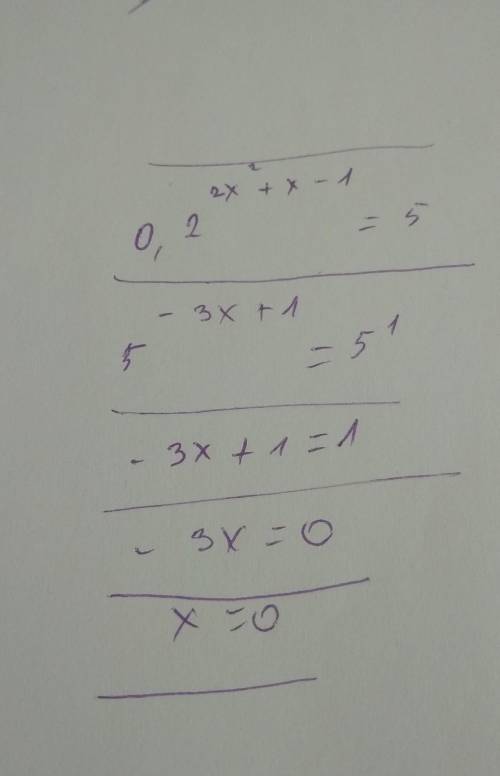 0,2^{2x^2+x-1} = 5
5^{-3x+1} = 5^1
-3x+1=1
-3x=0
x=0